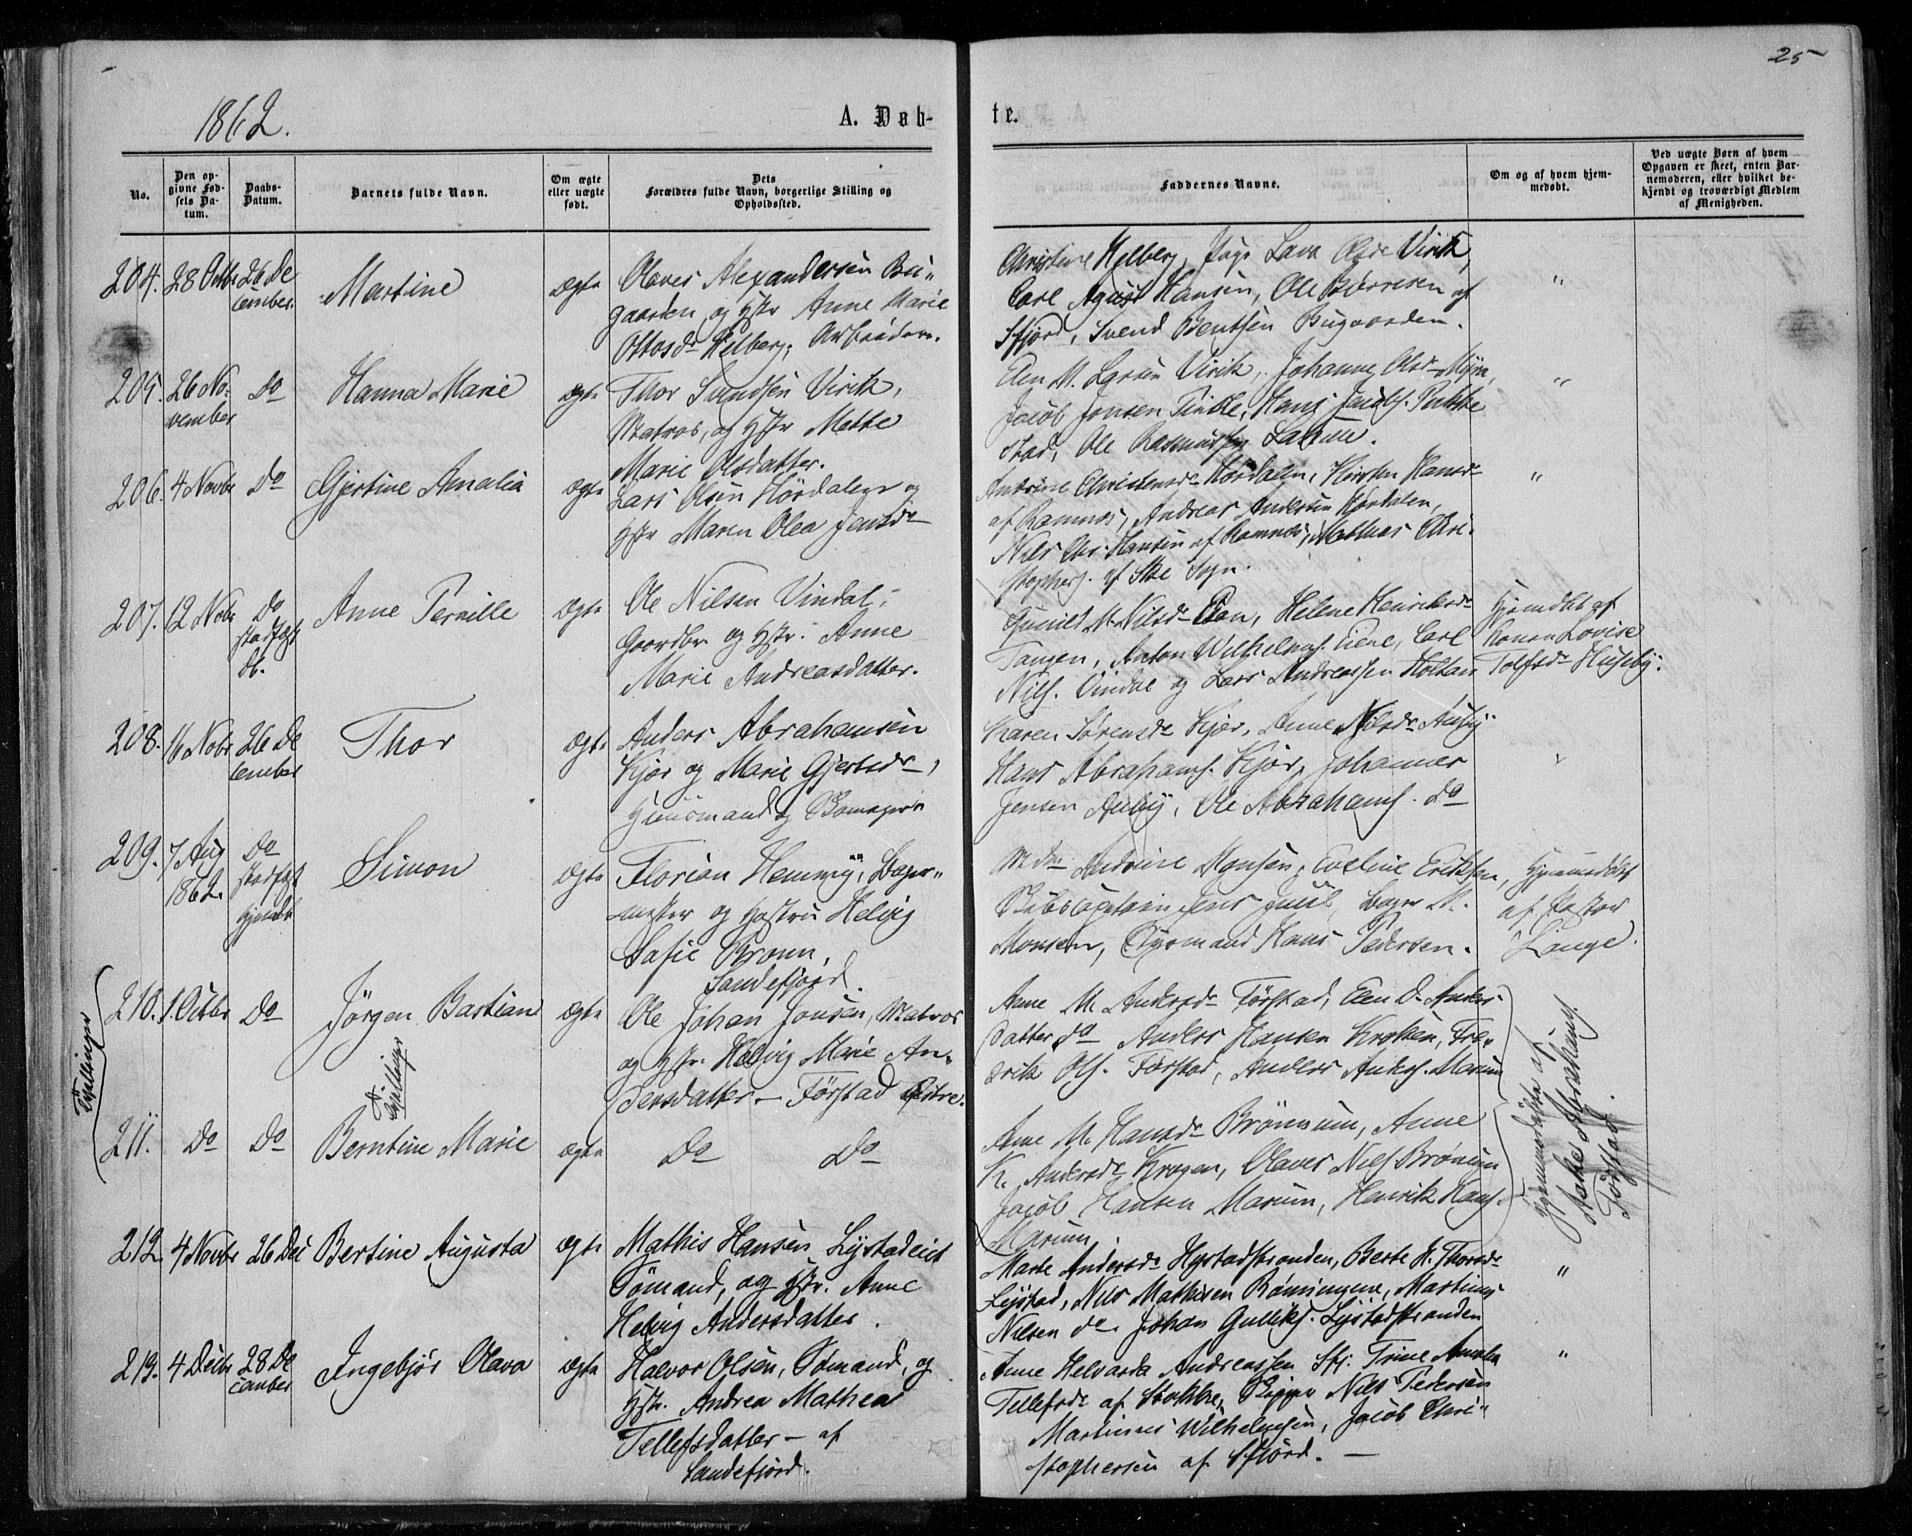 25
1862.
A. Døb-
te.
No.
Den opgivne Fødsels Datum.
Daabs-Datum.
Barnets fulde Navn.
Om ægte eller uægte født.
Dets Forældres fulde Navn, borgerlige Stilling og Opholdssted.
Faddernes Navne.
Om og af hvem hjemmedøbt.
Ved uægte Børn af hvem Opgaven er skeet, enten Barnemoderen, eller hvilket bekjendt og troværdigt Medlem af Menigheden.
204. 28 Octbr 26 De
cember.
Martine
Ægte
Olaves Alexandersen Bu-
gaarden og Hstr Anne Marie
Ottosdr Helberg, Arbeidsm.
Christine Helberg, Inge Lava Olsdr Virik,
Carl Agust Hansen, Ole Børresen af
Sfjord, Svend Bentsen Bugaarden.
"
205. 26 No-
vember
Do
Hanna Marie
ægte
Thor Svendsen Virik,
Matros, og Hstr Mette
Marie Olsdatter.
Elen M. Larsen Virik, Johanne Olsdr Myra,
Jacob Jonsen Hans Jacobs.
stad, Ole Rasmussen
"
206. 4 Novbr Do
Gjertine Amalia
ægte
Lars Olsen Hørdalen og
Hstr Maren Olea Jensdr
Andrine Christensdr Hørdalen, Kirsten Hansdr
af Ramnes, Andreas Andersen Hørdalen,
Nils Chr. Hansen af Ramnes, Mathias Chri-
stophers. af Ske Sogn.
"
207. 12 Nobr Do
stadfæst
Db.
Anne Pernille
Ægte
Ole Nilsen Vindal,
Gaardbr og Hstr. Anne
Marie Andreasdatter.
M. Nilsdr Helene Henriksdr
Tangen, Anton Wilhelms. Carl
Nils. Vindal og Lars Andreassen Holtan
Hjemdbt af
Konen Lovise
Tolfsdr Huseby.
208. 16 Nobr 26 De
cember
Thor
Ægte
Anders Abrahamsen
Kjær og Marie Gjertsdr,
Huusmand og Skomager
Karen Sørensdr Kjær, Anne Nilsdr Auby
Hans Abrahams. Kjær, Johannes
Jensen Auby, Ole Abrahams. do
"
209. 7 Aug
1862
Do
stadfæst
Hjemdbt
Simon
Ægte
Florian Hemmig, Bager-
mester og Hustru Helvig
Sofie Bronn,
Sandefjord.
Mdm Andrine Monsen, Eveline Eriksen,
Skibscapitain Jens Juul, Bager M.
Monsen, Styrmand Hans Pedersen.
Hjemmedøbt
af Pastor
Lange.
Tvillinger
210. 1. Octbr Do
Jørgen Bastian
Tvillinger
ægte
Ole Johan Jonsen, Matros
og Hstr. Helvig Marie An-
dersdatter - Førstad Østre.
Anne M. Andersdr Førstad, Elen D. Anders-
datter do Anders Hansen Kroken, Fre-
drik Ols. Førstad, Anders Anders. Marum
Hjemmedøbte af
Aake Abrahams.
Førstad.
211. Do Do
Berntine Marie
ægte
Do Do
Anne M. Hansdr Brønnum, Anne
K. Andersdr Krogen, Olaves Nils Brønum
Jacob Hansen Marum, Henrik Hans.
Marum.
212. 4 Novbr 26 Dec
Bertine Augusta
ægte
Mathis Hansen Lystadeiet
Sømand, og Hstr. Anne
Helvig Andersdatter.
Marte Andersdr Hystadstranden, Berte K. Thorsdr
Lystad, Nils Mathisen Rønningene, Martinus
Nilsen do. Johan Gulliks. Lystadstranden
"
213. 4 Decbr 28 De
cember
Ingebjør Olava
Ægte
Halvor Olsen, Sømand, og
Hstr. Andrea Mathea
Tellefsdatter - af
Sandefjord.
Anne Helvarda Andreassen Sfj. Trine Amalia
Tellefsdr af Stokke, Skipper Nils Pedersen
Martinus Wilhelmsen, Jacob Chri-
stophersen af Sfjord. -
"